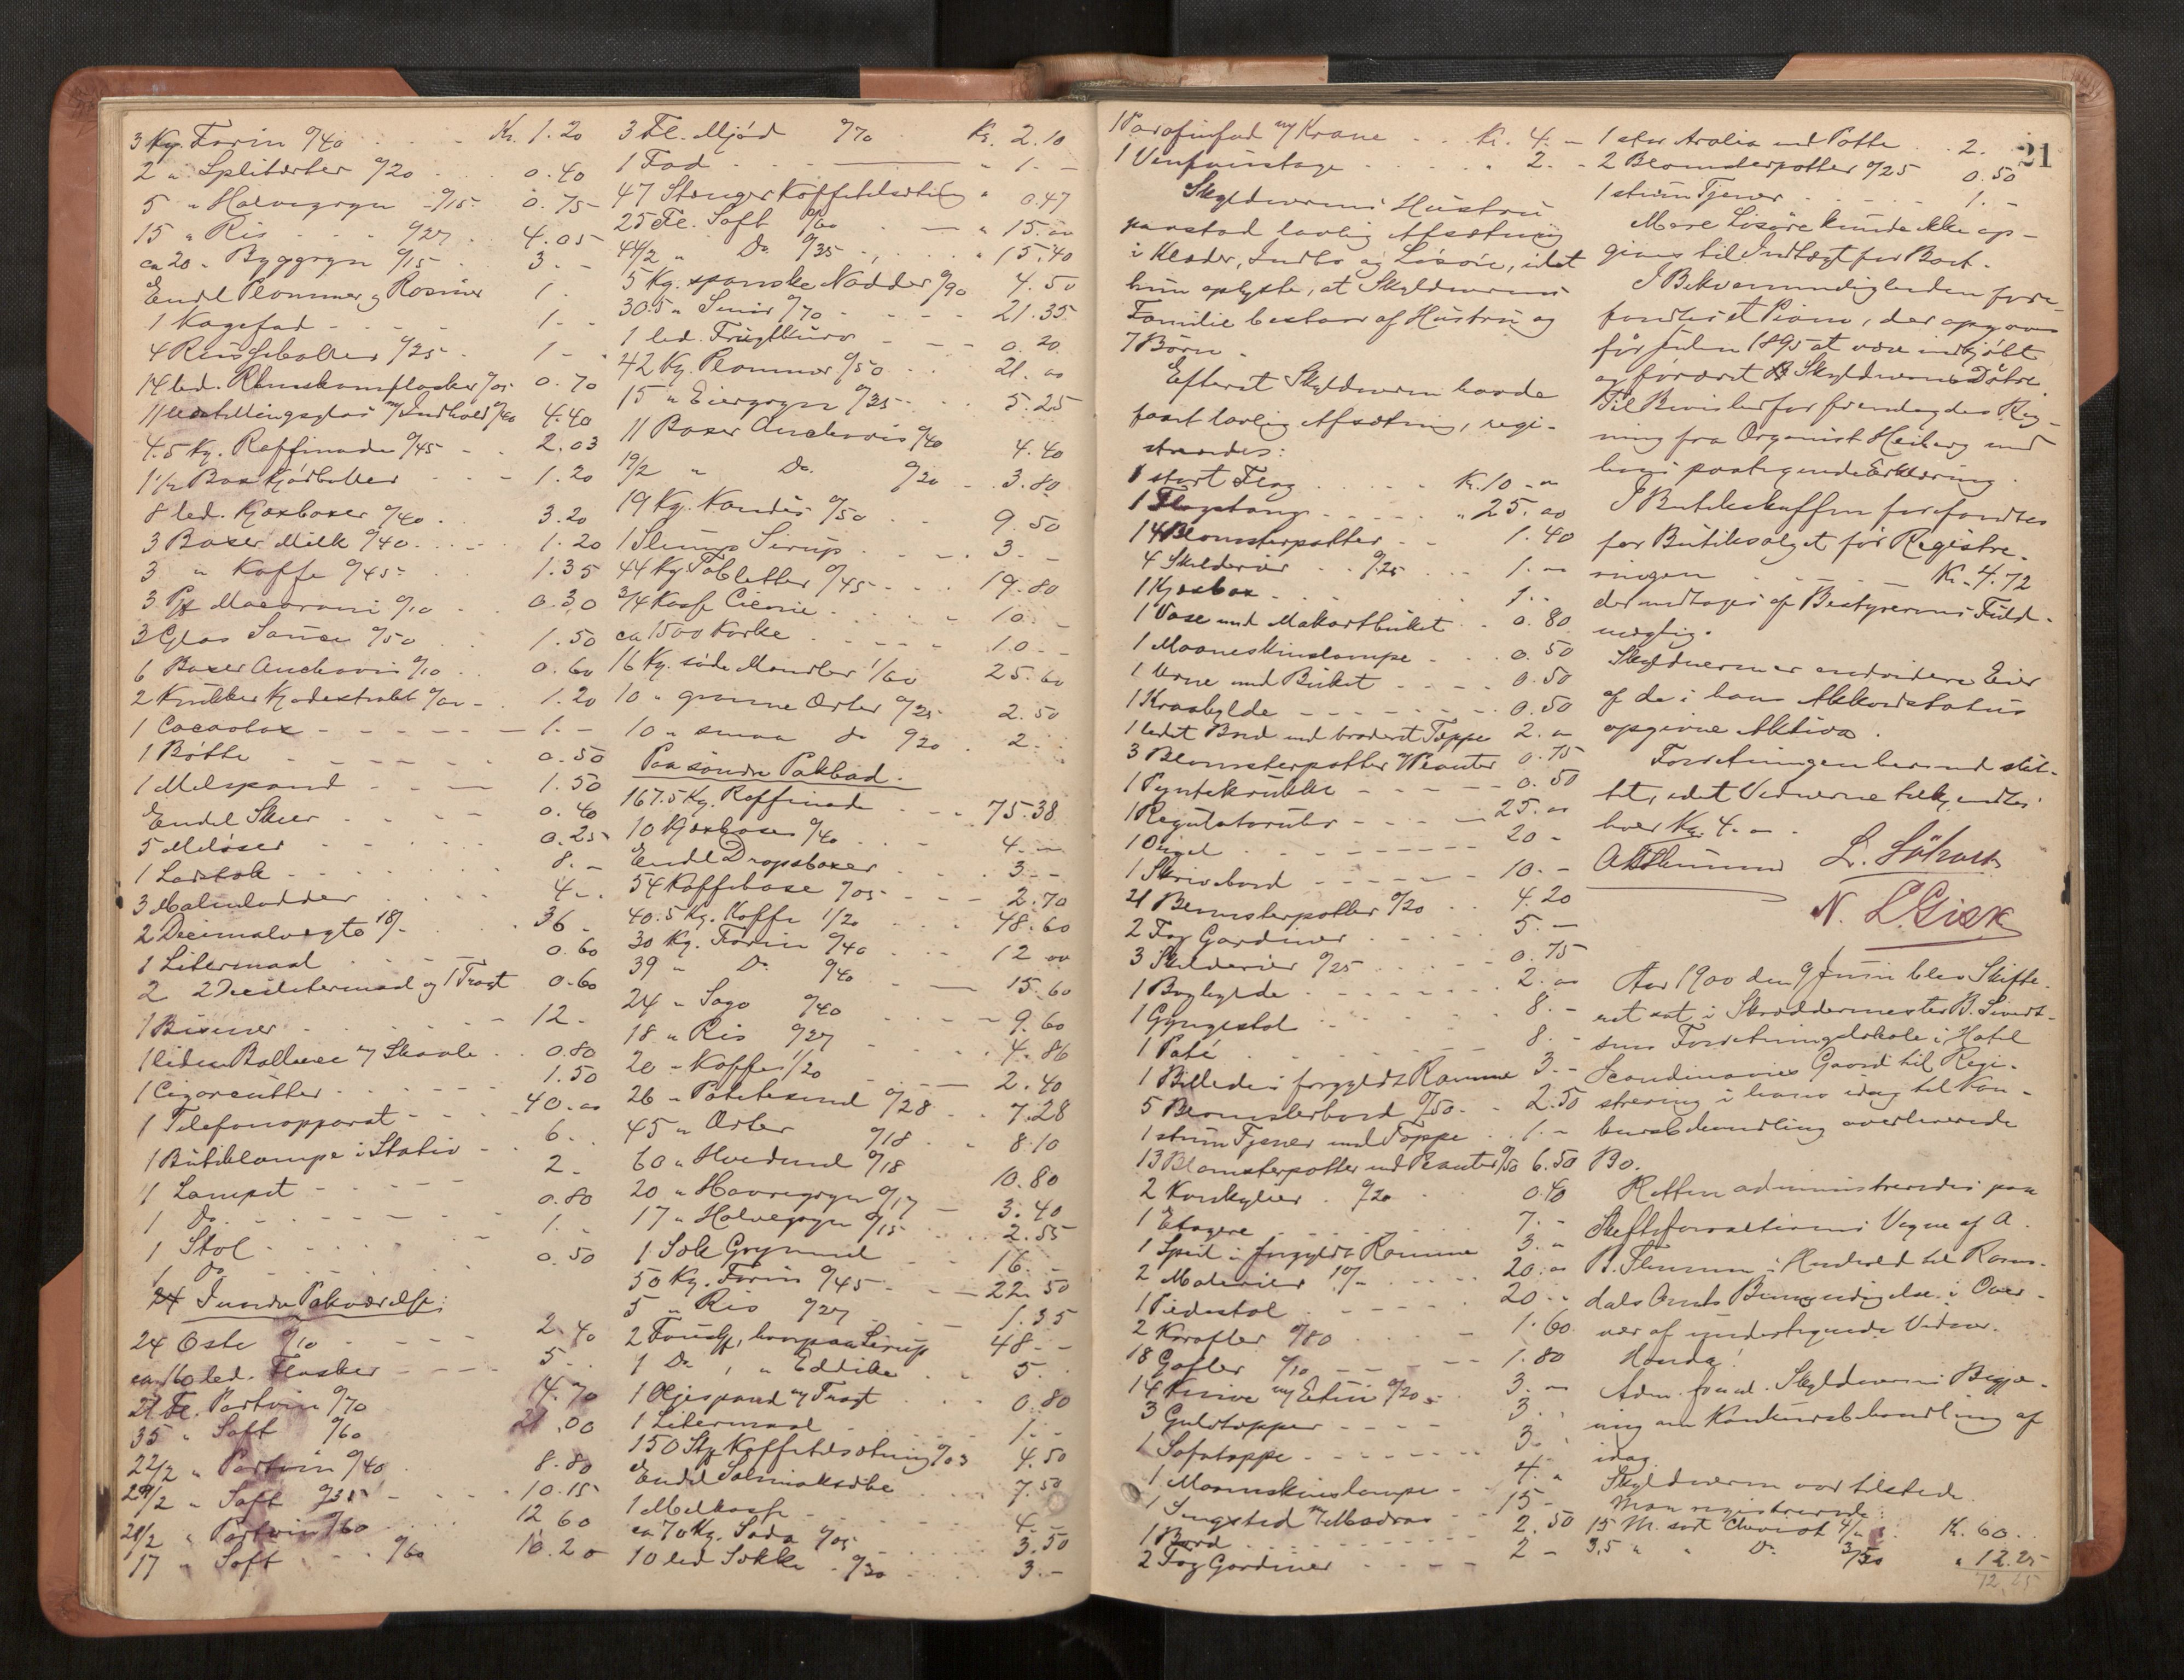 3 Kg. Farin 0/40 . . . Kr. 1.20
2 " Spliterter 0/20 . . 0.40
5 " Halvegryn 0/15 . 0.75
15 " Ris . . 0/27 . . 4.05
ca 20 " Byggryn 0/15 . 3. -
Endel Plommer og Rosiner 1. -
1 Kagefad - - - - 1. -
4 0/25 . 1 -
14 led. 0/05 0.70
11 0/40 4.40
4.5 Kg. Raffinade 0/45 - . 2.03
1 1/2 Box Kjødboller - - 1.20
8 led. Kjexboxer 0/40 . . 3.20
3 Boxer Milk 0/40 . . . 1.20
3 " Kaffe 0/45 . . 1.35
3 Pk Macaroni 0/10 . . 0.30
3 Glas Sauce 0/50 . . 1.50
6 Boxer Anchovis 0/10 . . 0.60
2 Krukker Kjødextrakt 0/60 - . 1.20
1 Cacaobox - - - - - 1. -
1 Bøtte - - - - - - 0.50
1 Melspand - - - 1.50
Endel Skeer - - - - 0.40
5 Meløser - - - - 0.25
1 - - - - - 8. -
3 . . . . 4. -
2 Decimalvegte 18/- . . 36 -
1 Litermaal . . . - - 0.60
2 2 Decilitermaal og 1 Tragt 0.60
1 Bismer - . . . . - 12. -
1 liden Ballance m/ Skaale . . 0.80
1 Cigarcutter . . . . . 1.50
1 Telefonapparat - - - . 40. oo
1 Butiklampe i Stativ - - 6. -
1 Lampet - - - - - 2. -
1 do - - - - - 0.80
1 Stol - . . . 1. -
1 do . . . . 0.50
I nordre Pakværelse:
24 Oste 0/10 - - - - 2.40
ca. 160 led. Flasker - - - 5 - .
21 Fl. Portvin 0/70 14.70
35 " Saft 0/60 21.00
22/2 " Portvin 0/40 . 8.80
29/2 " Saft 0/35 - - . 10.15
21/2 " Portvin 0/60 . . . . 12.60
17 " Saft - - . 0/60 10.20
3 Fl. Mjød 0/70 . . Kr. 2.10
1 Fad . . . " 1. -
47 Stænger " 0.47
25 Fl. Saft 0/60 . - " 15. oo
44/2 " Do 0/35 . . . " 15.40
5 Kg. spanske Nødder 0/90 4.50
30.5 " Smør 0/70 - - - - 21.35
1 led. Frugtkurv - - - 0.20
42 Kg. Plommer 0/50 . . . 21. oo
15 " Eiergryn 0/35 - . . 5.25
11 Boxer Anchovis 0/40 4.40
19/2 " Do. 0/20 - 3.80
19 Kg. Kandis 0/50 . . . 9.50
1 Slump Sirup . . - . 3. -
44 Kg. Tabletter 0/45 - - . 19.80
3/4 Kasse Cicorie . . . . 10. -
ca 1500 Korke . . - - - 10 - -
16 Kg. søde Mandler 1/60 25.60
10 " grønne Erter 0/25 . 2.50
10 " smaa do 0/20 . 2. -
Paa søndre Pakbod.
167.5 Kg. Raffinade - - - 75.38
10 Kjexboxer 0/40 . . . 4. -
Endel Dropsboxer . . . 3. -
54 Kaffeboxe 0/05 - - - 2.70
40.5 Kg. Kaffe 1/20 . . . 48.60
30 Kg. Farin 0/40 - - - 12 oo
39 " Do 0/40 - - 15.60
24 " Sago 0/40 - - - 9.60
18 " Ris 0/27 . . . 4.86
20 - Kaffe 1/20 - - - 2.40
26 " Potetesmel 0/28 . . 7.28
45 " Erter 0/18 . . 8.10
60 " Hvedemel 0/18 10.80
20 " Havregryn 0/17 - 3.40
17 " Halvegryn 0/15 . . . 2.55
1 Sæk Grynmel - - 16. -
50 Kg. Farin 0/45 - - - 22.50
5 " Ris 0/27 1.35
2 Foustg. Sirup 48 - -
1 Do , " Eddike . . 5. -
1 Oljespand m/ Tragt . . 0.80
1 Litermaal . . . . . 1. -
150 Stg. Kaffetilsætning 0/03 4.50
Endel Salmiaksæbe 7.50
1 Melkasse - . . . 4. -
ca 70 Kg. Soda 0/05 - - . 3.50
10 led Sække - 0/30 . . . 3. -
21
1 Parafinfad m/ Krane . . . Kr. 4. -
1 Vinfustage . . . . " 2. -
Skyldnerens Hustru
paastod lovlig Afsætning
i Klæder, Indbo og Løsøre, idet
hun oplyste, at Skyldnerens
Familie bestaar af Hustru og
7 Børn.
Efterat Skyldneren havde
faaet lovlig Afsætning, regi-
streredes:
1 stort Flag . . . . Kr. 10 - "
1 Flagstang . . - - - . " 25. oo
14 Blomsterpotter - . . 1.40
4 Skilderier . . 0/25 . . . 1. -
1 Kjexbox - . . . . . 1. -
1 Vase med Makartbuket . . 0.80
1 Maaneskinslampe - . . 0.50
1 Urne med Buket - - - . 0.50
1 Kraahylde - - - - - - 0.50
1 lidet Bord med broderet Teppe 2. -
3 Blomsterpotter m/ Planter 0.75
1 Pyntekrukke - - - - - 0.50
1 Regulatoruhr - - - - 25. oo
1 Orgel . - - - - - - - 20 -
1 Skrivebord - - - - - - 10. -
21 Blomsterpotter 0/20 . . 4.20
2 Fag Gardiner - . . . . 5. -
3 Skilderier 0/25 . . . - - 0.75
1 Boghylde . - - - - - - 2. oo
1 Gyngestol . . - - - - - 8. -
1 . . . . . . 8. -
1 Billede i forgyldt Ramme 3. -
5 Blomsterbord 0/50 - - 2.50
1 stum Tjener med Teppe . . 1. -
13 Blomsterpotter med Planter 0/50 6.50
2 Konkylier . 0/20 . . 0.40
1 Etagere . - . . . . 7. -
1 Speil i forgyldt Ramme 3. -
2 Malerier 10/- . . - - - 20. oo
1 Piedestal . . . - - - 20 - -
2 Karafler 0/80 . . . - 1.60
18 Gafler 0/10 - - . . - - 1.80
14 Knive m/ Etui 0/20 - . . 3. -
3 Gulvtepper - - - - 3. -
1 Sofateppe - - - - - - - 3. -
1 Maaneskinslampe - - 4. -
1 Sengsted m/ Madras - - 15 -
1 Bord . . . - - - - - - 2.50
2 Fag Gardiner . - - - - - 2 -
1 stor Aralia med Potte . . 2. -
2 Blomsterpotter 0/25 0.50
1 stum Tjener . . . . . 1. -
Mere Løsøre kunde ikke op-
gives til Indtægt for Boet.
I Bekvemmeligheden fore-
fandtes et Piano, der opgaves
før Julen 1895 at være indkjøbt
og foræret Skyldnerens Døtre.
Til Bevis herfor fremlagdes Reg-
ning fra Organist Heiberg med
hans paategnede Erklæring.
I Butikskuffen forefandtes
for Butiksalget før Registre-
ringen . . . . - - Kr. 4.72
der modtoges af Bestyrerens Fuld-
mægtig.
Skyldneren er endvidere Eier
af de i hans Akkordstatus
opgivne Aktiva.
Forretningen herved slut-
tet, idet Vidnerne tilkjendtes
hver Kr. 4. - .
N. L. Gisk
Aar 1900 den 9 Juni blev Skifte-
ret sat i Skræddermester B. Sivert-
sens Forretningslokale i Hotel
Scandinavies Gaard til Regi-
strering i hans idag til Kon-
kursbehandling overleverede
Bo.
Retten administreredes paa
Skifteforvalterens Vegne af A.
B. i Henhold til Roms-
dals Amts Bemyndigelse i Over-
vær af undertegnede Vidner.
Adm. freml. Skyldnerens Begjæ-
ring om Konkursbehandling af
idag.
Skyldneren var tilstede.
Man registrerede:
15 M. sort Cheviot 4/- . Kr. 60. -
3.5 " " Do 3/50 " 12.25
72,25